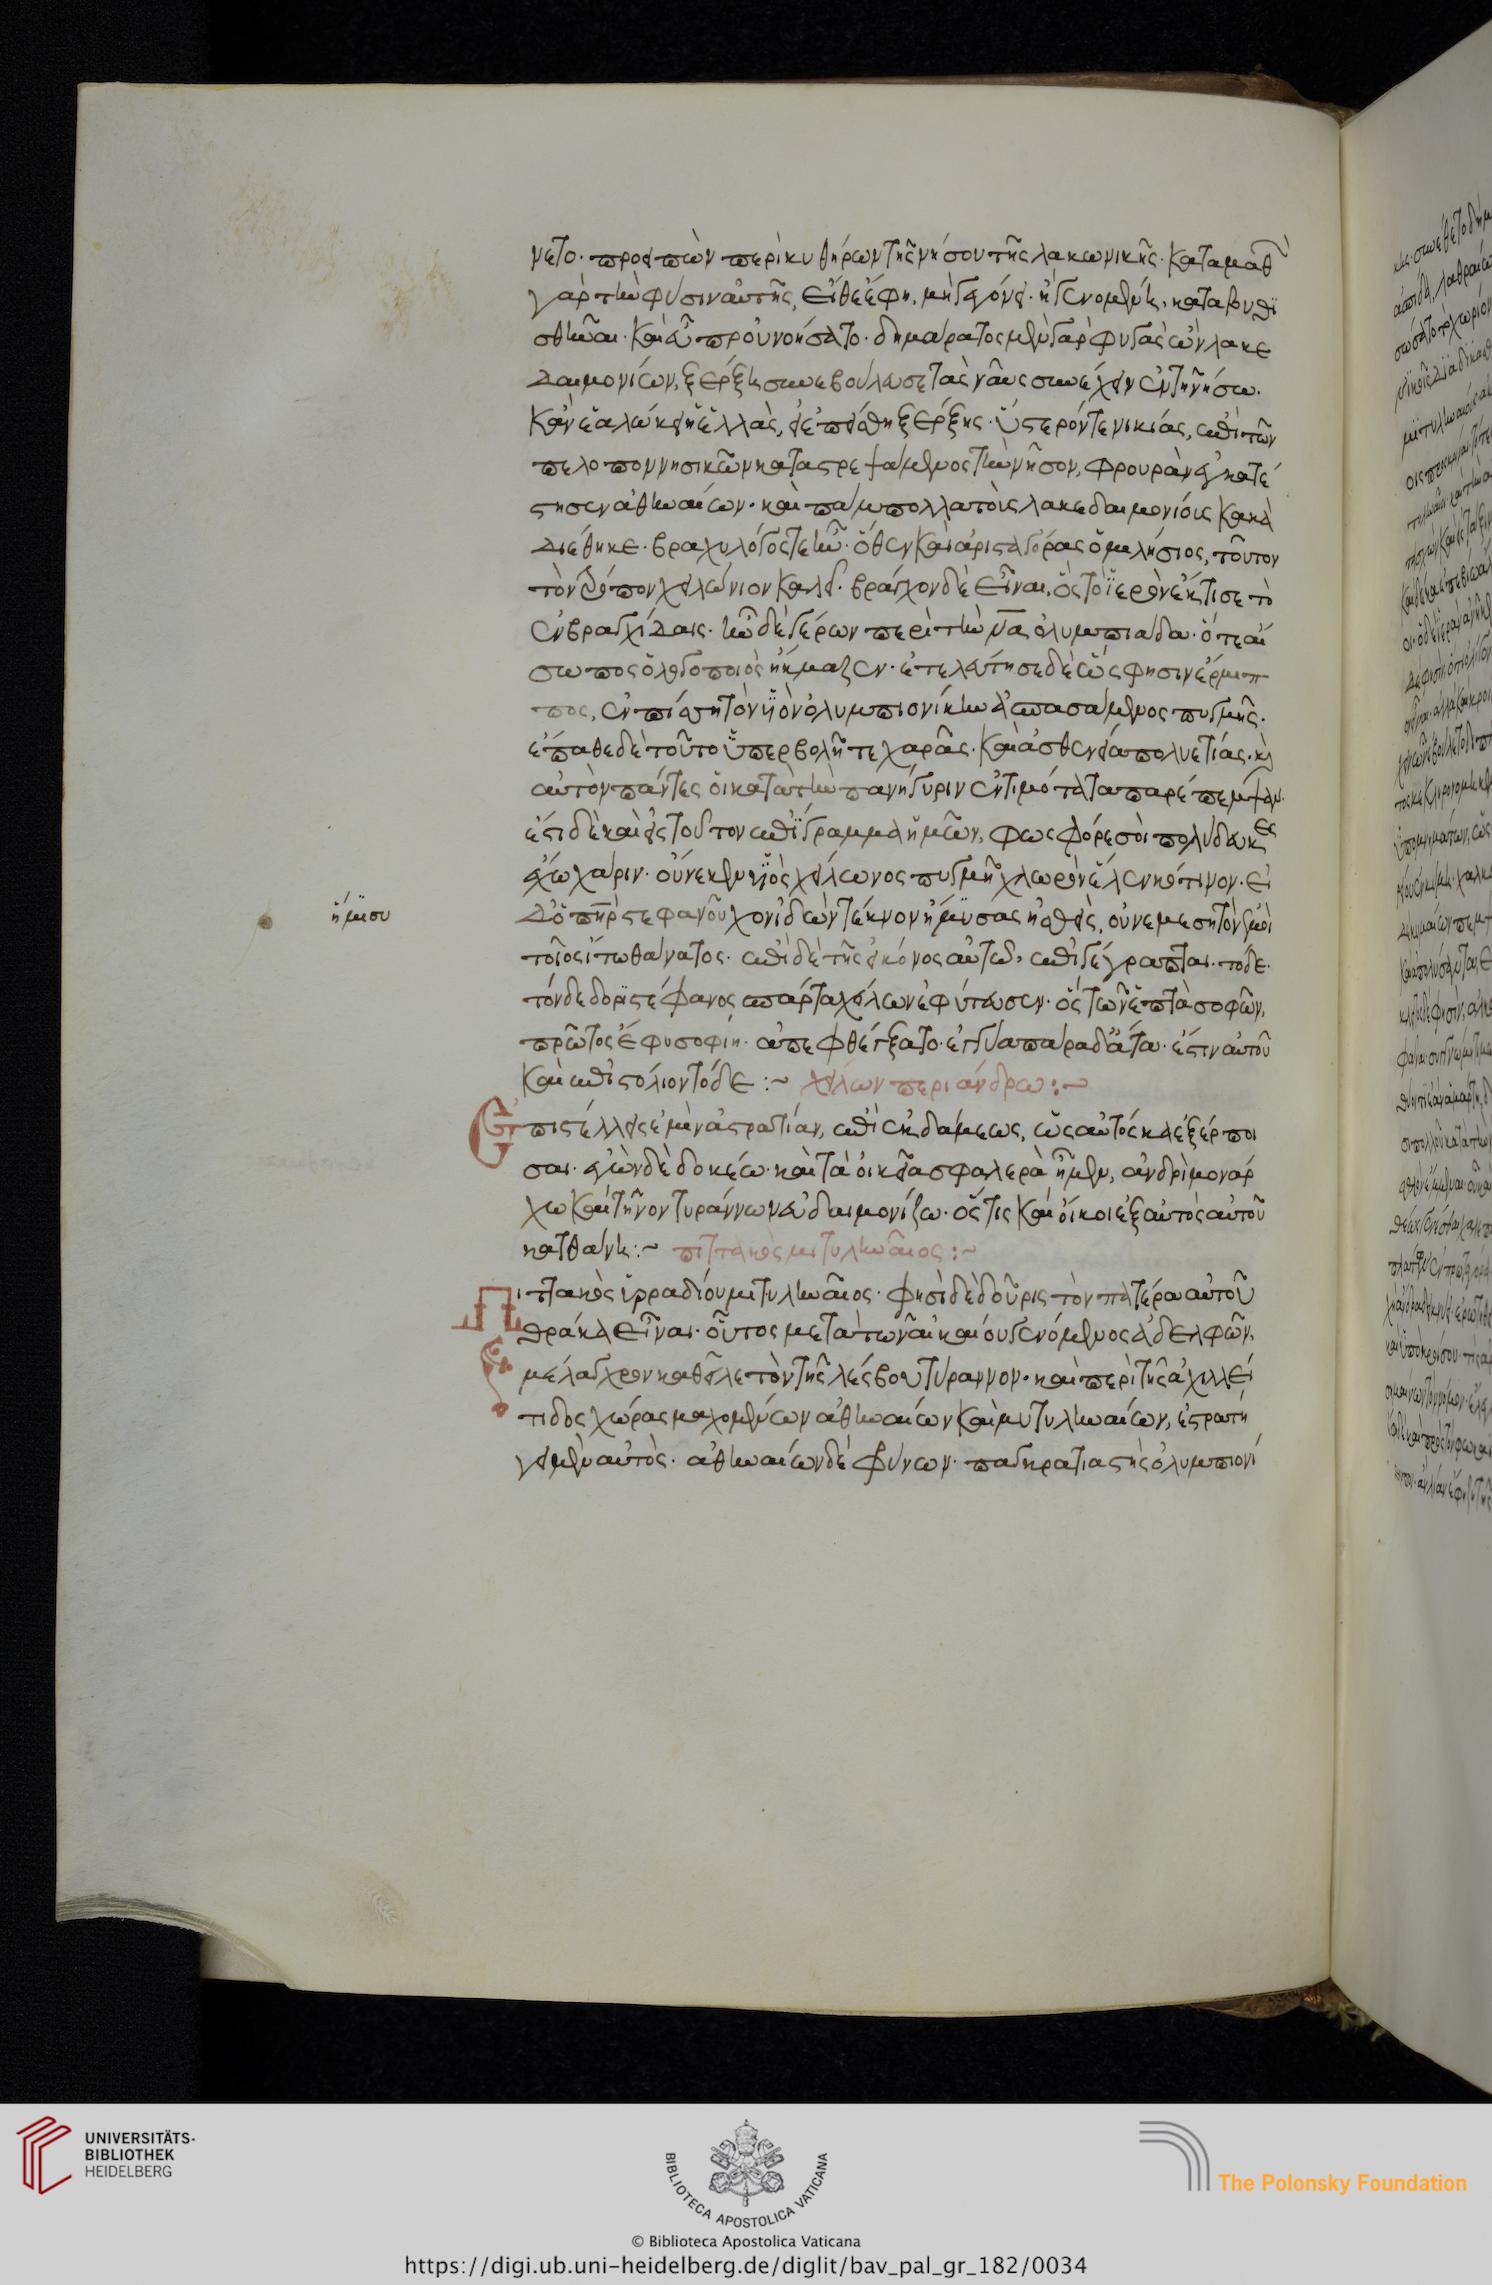 νετο· προειπὼν περὶ κυθήρων τῆς νήσου τῆς λακωνικῆς· καταμαθὼ
γὰρ τὴν φύσιν αὐτῆς, εἴθε ἔφη, μὴ ἐγεγόνει· ἢ γενομένη, κατα βυθϊ
σθῆναι· καὶ εὖ προὐνοήσατο· δημάρατος μὲν γὰρ φυγὰς ὢν λακε
δαιμονίων, ξέρξῃ συνεβούλευσε τὰς ναῦς συνέχειν ἐν τῇ νήσω·
κἂν ἑαλώκει ἡ ἑλλὰς, εἰ ἐπείσθη ξέρξης· ὕστερόν τε νικίας, ἐπὶ τῶν
πελοποννησικῶν καταστρεψάμενος τὴν νῆσον, φρουρὰν ἐγκατέ
στησεν ἀθηναίων· καὶ πάμπολλα τοὺς λακεδαιμονίους κακὰ
διέθηκε· βραχυλόγος τε ἦν· ὅθεν καὶ ἀρισταγόρας ὁ μιλήσιος, τοῦτον
τὸν τρόπον χειλώνιον καλεῖ· βράγχον δὲ εἶναι, ὃς τὸ ἱερὸν ἔκτισε τὸ
ἐν βραγχίδαις· ἦν δὲ γέρων περὶ τὴν ν̅α̅ ὀλυμπιάδα· ὅτε αἴ
σωπος ὁ λογοποιὸς ἤκμαζεν· ἐτελεύτησε δὲ ὥς φησιν ἕρμιπ
πος, ἐν πίσῃ τὸν υἱὸν ὀλυμπιονίκην ἀσπασάμενος πυγμῆς·
ἔπαθε δὲ τοῦτο ὑπερβολῇ τε χαρᾶς· καὶ ἀσθενείᾳ πολυετίας· κ
αὐτὸν πάντες οἱ κατὰ τὴν πανήγυριν ἐντιμότατα παρέπεμψαν·
ἔστι δὲ καὶ εἰς τοῦτον ἐπίγραμμα ἡμῶν, φωσφόρε σοὶ πολύδευκες
ἔχω χάριν· οὕνεκεν υἱὸς χείλωνος πυγμῇ χλωρὸν ἕλεν κότινον· εἰ
δ' ὁ πη̅ρ̅ στεφανοῦχον ἰδὼν τέκνον ἤμϋσας ἡσθεὶς, οὐ νεμεσητὸν ἐμοὶ
τοῖος ἴτω θάνατος· ἐπὶ δὲ τῆς εἰκόνος αὐτοῦ, ἐπιγέγραπται· τόδε·
τόνδε δορϊστέφανος σπάρτα χείλων' ἐφύτευσεν· ὃς τῶν ἑπτὰ σοφῶν,
πρῶτος ἔφυ σοφίῃ· ἀπεφθέγξατο· ἐγγύα πάρα δ' ἄτα· ἔστιν αὐτοῦ
καὶ ἐπιστόλιον τόδε :~ χείλων περιάνδρω :~
Ἐπιστέλλεις ἐμὶν ἀστρατίαν, ἐπὶ ἐκδάμεως, ὡς αὐτός κα ἐξέρποι
σαι· ἐγὼν δὲ δοκέω· καὶ τὰ οἰκεῖα σφαλερὰ ἦμεν, ἀνδρὶ μονάρ
χω καὶ τῆνον τυράννων εὐδαιμονίζω· ὅστις καὶ οἴκοι ἐξ αὐτὸς αὐτοῦ
κατθάνῃ :~ πιττακὸς μιτυληναῖος :~
Πιττακὸς ὑρραδίου μιτυληναῖος· φησὶ δὲ δοῦρις τὸν πατέρα αὐτοῦ
θρᾶκα εἶναι· οὗτος μετὰ τῶν ἀλκαίου γενόμενος ἀδελφῶν,
μέλαγχρον καθεῖλε τὸν τῆς λέσβου τύραννον· καὶ περὶ τῆς ἀχιλλεί
τιδος χώρας μαχομένων ἀθηναίων καὶ μιτυληναίων, ἐστρατή
γει μὲν αὐτὸς· ἀθηναίων δὲ φρύνων· παγκρατιαστὴς ὀλυμπιονί
ἤμϊσυ
UNIVERSITÄTS-
BIBLIOTHEK
HEIDELBERG
BIBLIOTECA APOSTOLICA VATICANA
The Polonsky Foundation
© Biblioteca Apostolica Vaticana
https://digi.ub.uni-heidelberg.de/diglit/bav_pal_gr_182/0034